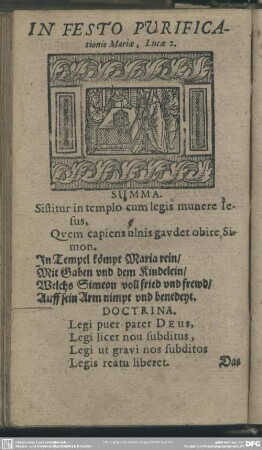 IN FESTO PURIFICA-
tionis Mariæ, Lucæ 2.
SUMMA.
Sistitur in templo cum legis munere Ie-
sus,
Qvem capiens ulnis gavdet obire Si-
mon.
In Tempel kömpt Maria rein/
Mit Gaben vnd dem Kindelein/
Welchs Simeon voll fried vnd frewd/
Auff sein Arm nimpt vnd benedeyt.
DOCTRINA.
Legi puer paret DEUS,
Legi licet non subditus,
Legi ut gravi nos subditos
Legis reatu liberet.
Das